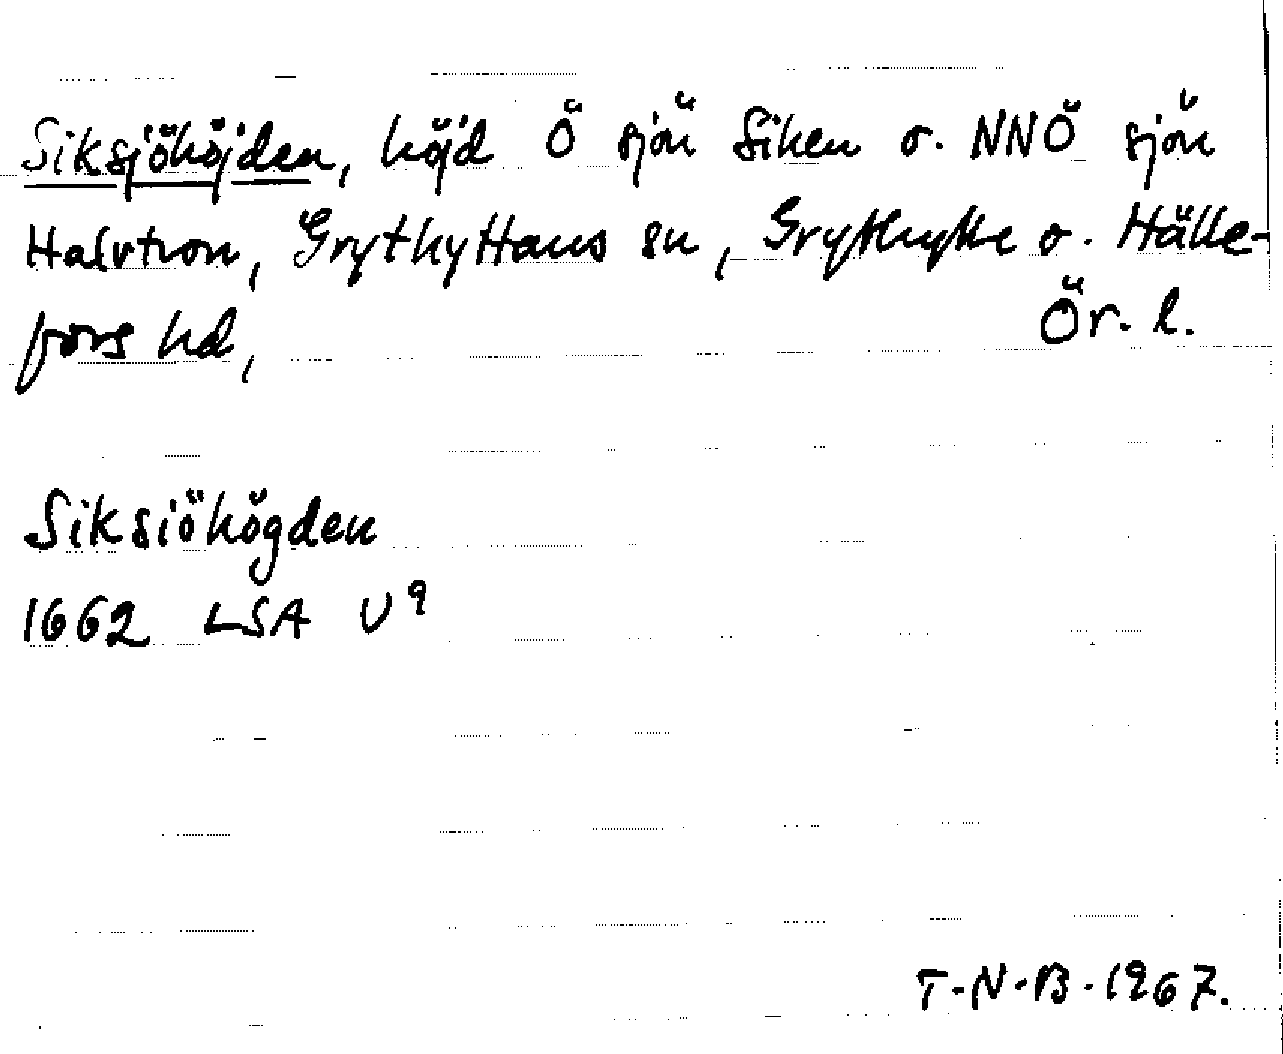 Siksjöhöjden, höjd Ö sjön Siken o. NNÖ sjön
Halvtron, Grythyttans sn, Grythytte o. Hälle-
fors hd, Ör. l.
Siksiöhögden
1662 LSA U⁹
T-N-B-1967.